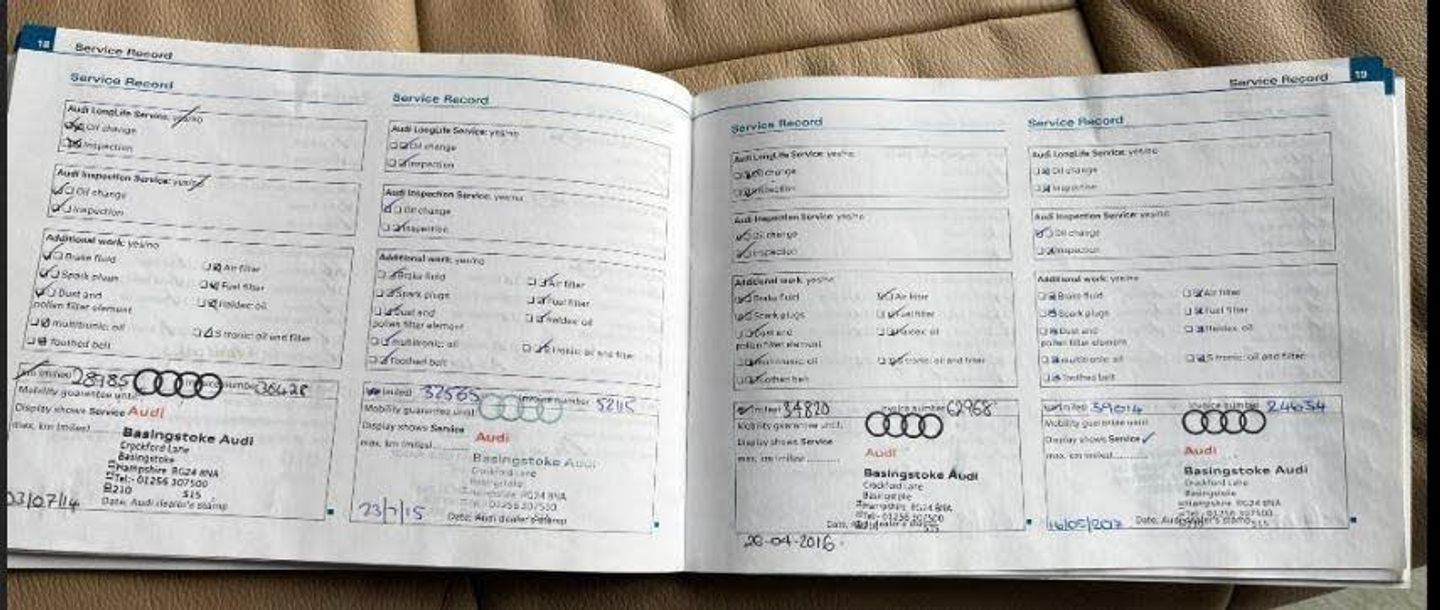 18
Service Record
Service Record
Audi LongLife Service: yes/no
Oil change
Inspection
Audi Inspection Service: yes/no
Oil change
Inspection
Additional work: yes/no
Brake fluid
Air filter
Spark plugs
Fuel filter
Dust and
pollen filter element
Haldex: oil
multitronic: oil
S tronic: oil and filter
Toothed belt
km (miles) 28985
invoice number 36428
Mobility guarantee until
Display shows Service
Audi
max. km (miles)
Basingstoke Audi
Crockford Lane
Basingstoke
Hampshire RG24 8NA
Tel:- 01256 307500
B210 515
Date, Audi dealer's stamp
03/07/14
Service Record
Audi LongLife Service: yes/no
Oil change
Inspection
Audi Inspection Service: yes/no
Oil change
Inspection
Additional work: yes/no
Brake fluid
Air filter
Spark plugs
Fuel filter
Dust and
pollen filter element
Haldex: oil
multitronic: oil
S tronic: oil and filter
Toothed belt
(miles) 32565
invoice number 5215
Mobility guarantee until
Display shows Service
Audi
max. km (miles)
Basingstoke Audi
Crockford Lane
Basingstoke
Hampshire RG24 8NA
01256 307500
23/7/15
Date, Audi dealer's stamp
Service Record
19
Service Record
Audi LongLife Service: yes/no
Oil change
Inspection
Audi Inspection Service: yes/no
Oil change
Inspection
Additional work: yes/no
Brake fluid
Air filter
Spark plugs
Fuel filter
Dust and
pollen filter element
Haldex: oil
multitronic: oil
S tronic: oil and filter
Toothed belt
(miles) 34820
invoice number 62968
Mobility guarantee until
Display shows Service
Audi
max. km (miles)
Basingstoke Audi
Crockford Lane
Basingstoke
Hampshire RG24 8NA
Tel:- 01256 307500
515
Date, Audi dealer's stamp
26-04-2016
Service Record
Audi LongLife Service: yes/no
Oil change
Inspection
Audi Inspection Service: yes/no
Oil change
Inspection
Additional work: yes/no
Brake fluid
Air filter
Spark plugs
Fuel filter
Dust and
pollen filter element
Haldex: oil
multitronic: oil
S tronic: oil and filter
Toothed belt
(miles) 39014
invoice number 24634
Mobility guarantee until
Display shows Service
Audi
max. km (miles)
Basingstoke Audi
Crockford Lane
Basingstoke
Hampshire RG24 8NA
Tel:- 01256 307500
515
16/05/2017
Date, Audi dealer's stamp